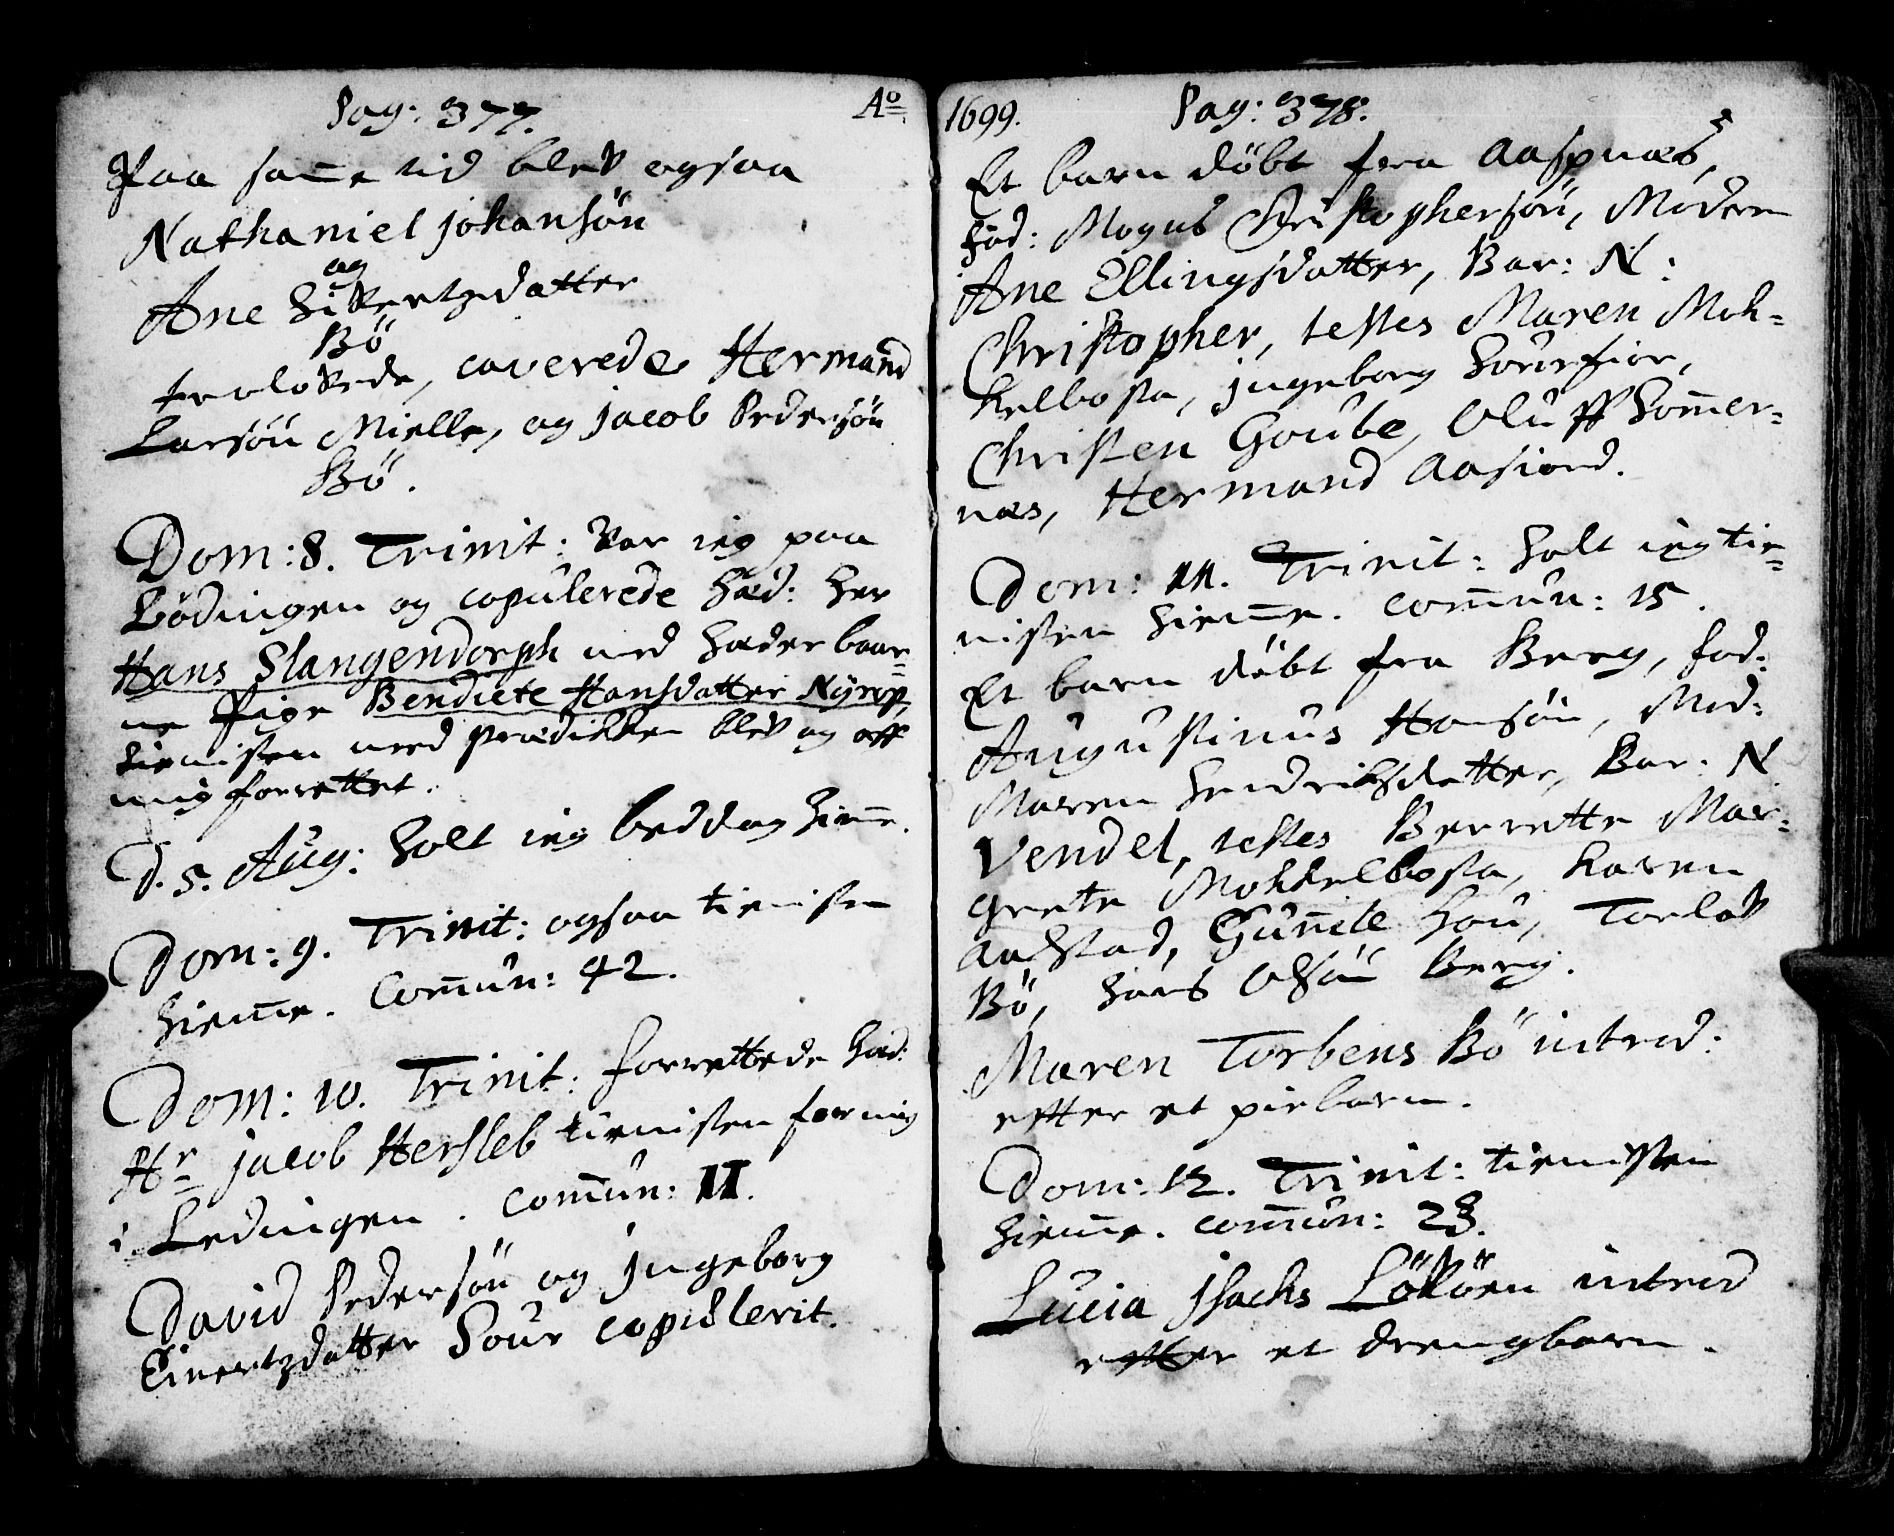 Pag: 377.
Paa sam̅e tid blev ogsaa
Nathaniel Johansøn
og
Ane Sivertzdatter
Bö
trolovede, caverede Hermand
Larsøn Mielle, og Jacob Pedersøn
Bö.
Dom: 8. Trinit: var ieg paa
Lödingen og copulerede Hæd: Her
Hans Slangendorph med Hæderbaar=
ne Pige Bendicte Hansdatter Nyrop,
tienisten med prædikken blev og aff
mig forrettet.
D. 5. Aug: Holt ieg beddag hiem̅e.
Dom: 9. Trinit: ogsaa tienisten
hiem̅e. Com̅un: 42.
Dom: 10. Trinit: forrettede Hæd:
Hr Jacob Hersleb tienisten for mig
i Ledingen. Com̅un: 11.
David Pedersøn og Ingeborg
Einertzdatter Sour copulerit.
Ao 1699.
Pag: 378.
Et barn döbt fra Aaspnæs,
Fad: Mogns Christophersøn, Moderen
Ane Ellingsdatter, Bar: N:
Christopher, testes Maren Moh=
kelbosta, Ingeborg
Christen Goube, Oluff Som̅er=
næs, Hermand Aasiord.
Dom: 11. Trinit: Holt ieg tie=
nisten hiem̅e. Com̅un: 15.
Et barn döbt fra Berg, Fad:
Augustinus Hansøn, Mod:
Maren Hendrichsdatter, Bar: N
Vendel, testes Berrette Mar=
grete Mohkelbosta, Karen
Aalstad, Gunnile Hou, Torlof
Bö, Hans Olsøn Berg.
Maren Torbens Bö introd:
effter et piebarn.
Dom: 12. Trinit: tienisten
hiem̅e. Com̅un: 23.
Lucia Isachs Lövöen introd
effter et drengbarn.